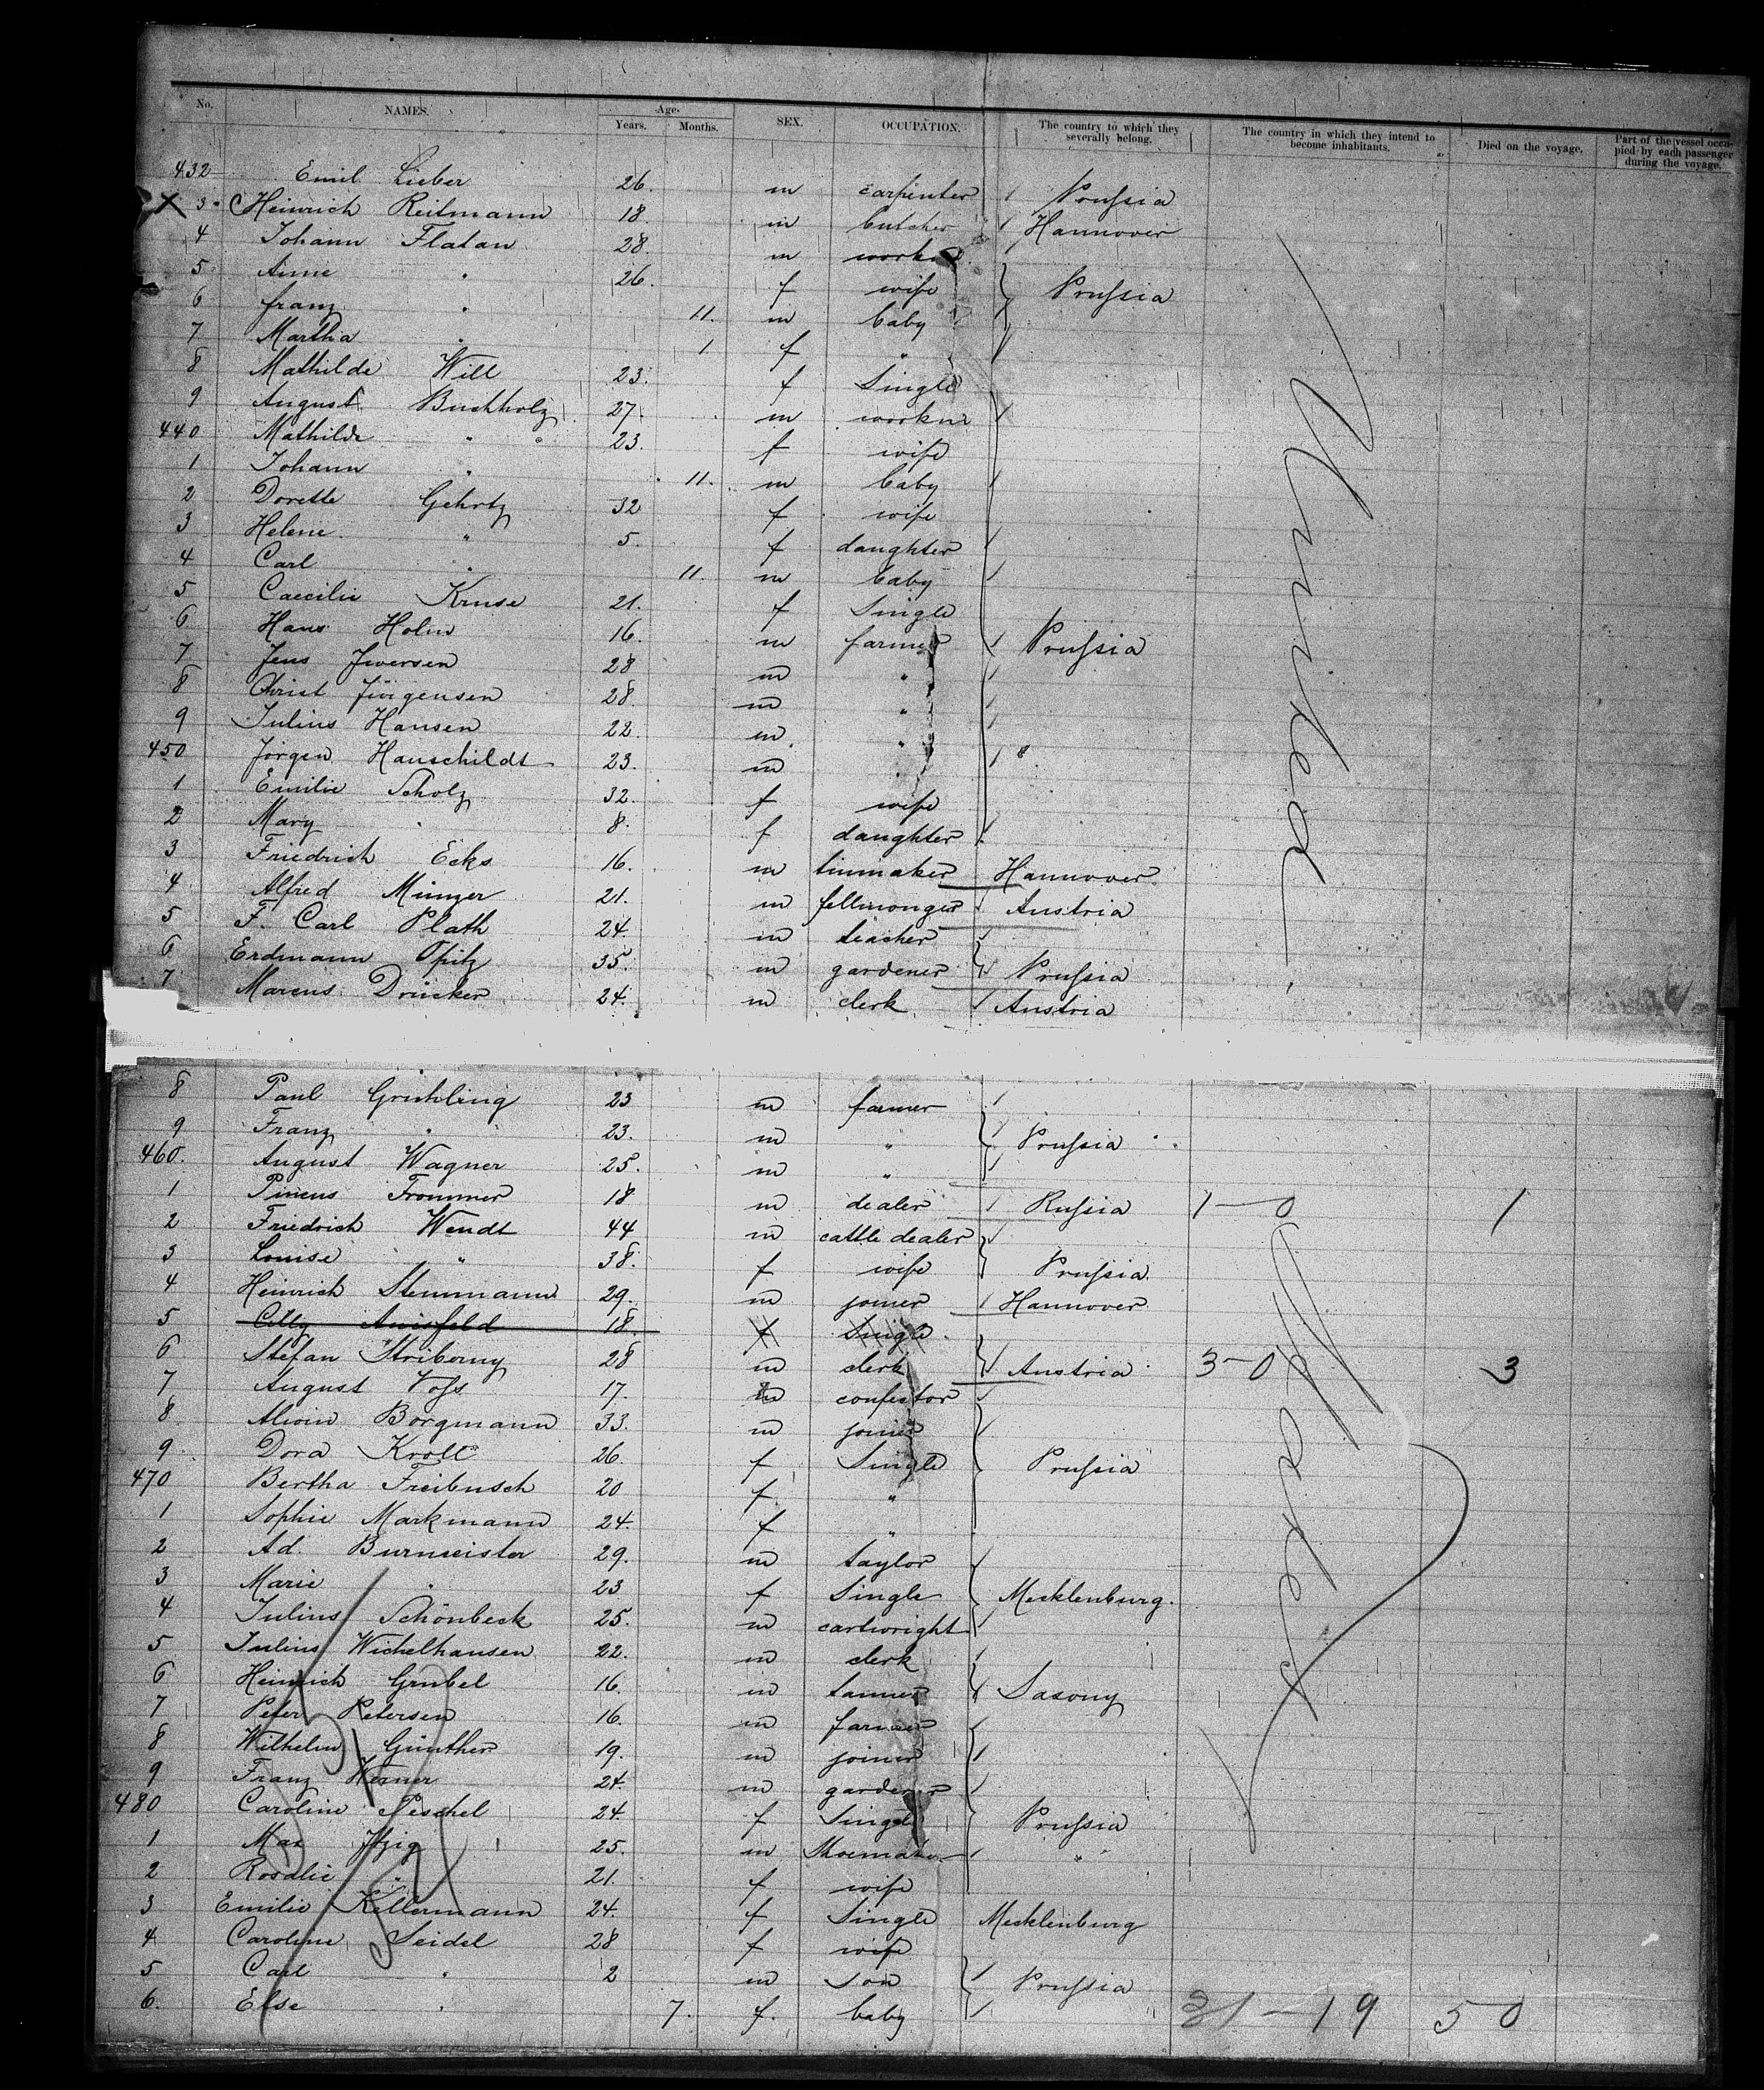 No. NAMES. Age. Years. Months. SEX. OCCUPATION. The country to which they severally belong. The country in which they intend to become inhabitants. Died on the voyage. Part of the vessel occupied by each passenger during the voyage.
432 Emil Lieber 26. m carpenter Prussia
X 3 Heinrich Reitmann 18. m butcher Hannover
4 Johann Flatau 28 m
5 Anne " 26. f wife Prussia
6 franz " 11. m baby
7 Martha " 1 f "
8 Mathilde Will 23. f Single
9 August Buchholz 27. m workm
440 Mathilde " 23. f wife
1 Johann " 11. m baby
2 Dorette Gehrtz 32 f wife
3 Helene " 5. f daughter
4 Carl " 11. m baby
5 Caecilie Kruse 21. f Single
6 Hans Holm 16. m farmer Prussia
7 Jens Jwersen 28 m "
8 Christ Jürgensen 28. m "
9 Julius Hansen 22. m "
450 Jörgen Hanschildt 23. m " "
1 Emilie Scholz 32. f wife
2 Mary " 8. f daughter
3 Friedrich Ecks 16. m tinmaker Hannover
4 Alfred Münzer 21. m fellmonger Austria
5 F. Carl Plath 24. m teacher
6 Erdmann Opitz 35. m gardener Prussia
7 Marcus Drücker 24. m clerk Austria
8 Paul Gruhling 23 m farmer
9 Franz " 23. m " Prussia
460. August Wagner 25. m "
1 Pincus Frommer 18 m dealer Russia 1-0 1
2 Friedrich Wendt 44 m cattle dealer
3 Louise " 38. f wife Prussia
4 Heinrich Stemmann 29. m joiner Hannover
5 Cilly 18. f Single
6 Stefan Striberny 28 m clerk Austria 3-0 3
7 August Voss 17. m confector
8 Alwin Borgmann 33. m joiner
9 Dora Kroll 26. f Single Prussia
470 Bertha Freibusch 20 f "
1 Sophie Markmann 24. f "
2 Ad. Burmeister 29. m taylor
3 Marie " 23 f Single Mecklenburg.
4 Julius Schönbeck 25. m cartwright
5 Julius Wichelhausen 22. m clerk
6 Heinrich Grubel 16. m tanner Saxony
7 Peter Petersen 16. m farmer
8 Wilhelm Günther 19. m joiner
9 Franz Werner 24. m gardener
480 Caroline Peschel 24. f Single Prussia
1 Max Jtzig 25. m Shoemaker "
2 Rosalie " 21. f wife
3 Emilie Kellermann 24. f Single Mecklenburg
4 Caroline Seidel 28 f wife
5 Carl " 2 m son Prussia
6. Else " 7. f. baby 31-19 50
United
States